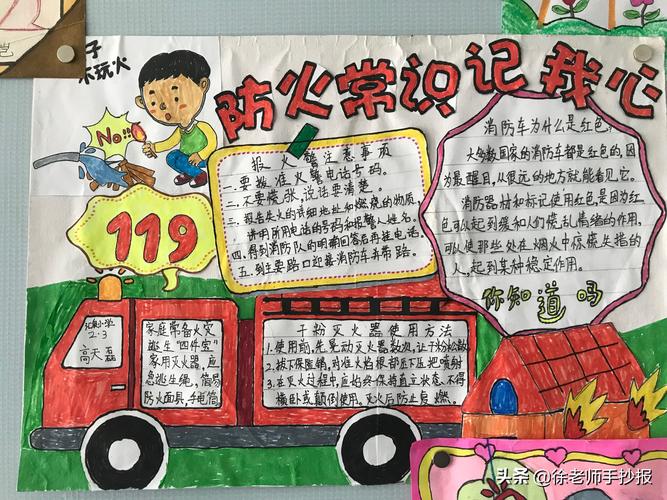 子
不玩火
No!!
防火常识记我心
119
报火警注意事项
一.要拨准火警电话号码。
二.不要慌张,说话要清楚。
三.报告失火的详细地址和燃烧的物质,
并明所用电话的号码和报警人姓名。
四.得到消防队的明确回答后再挂电话。
五.到主要路口迎接消防车并带路。
消防车为什么是红色
大多数国家的消防车都是红色的,因
为最醒目,从很远的地方就能看见它。
消防器材和标记使用红色是因为红
色可以起到缓和人们慌乱情绪的作用,
可以使那些处在烟火中惊慌失措的
人,起到某种稳定作用。
你知道吗
小学
2·3
高天磊
家庭常备火灾
逃生“四件宝”
家用灭火器,应
急逃生绳,简易
防火面具,手电筒
干粉灭火器使用方法
1.使用前,先晃动灭火器数次,让干粉松散
2.拔下保险销,对准火焰根部压下压把喷射
3.在灭火过程中,应始终保持直立状态,不得
横卧或颠倒使用。灭火后防止复燃。
头条 @徐老师手抄报